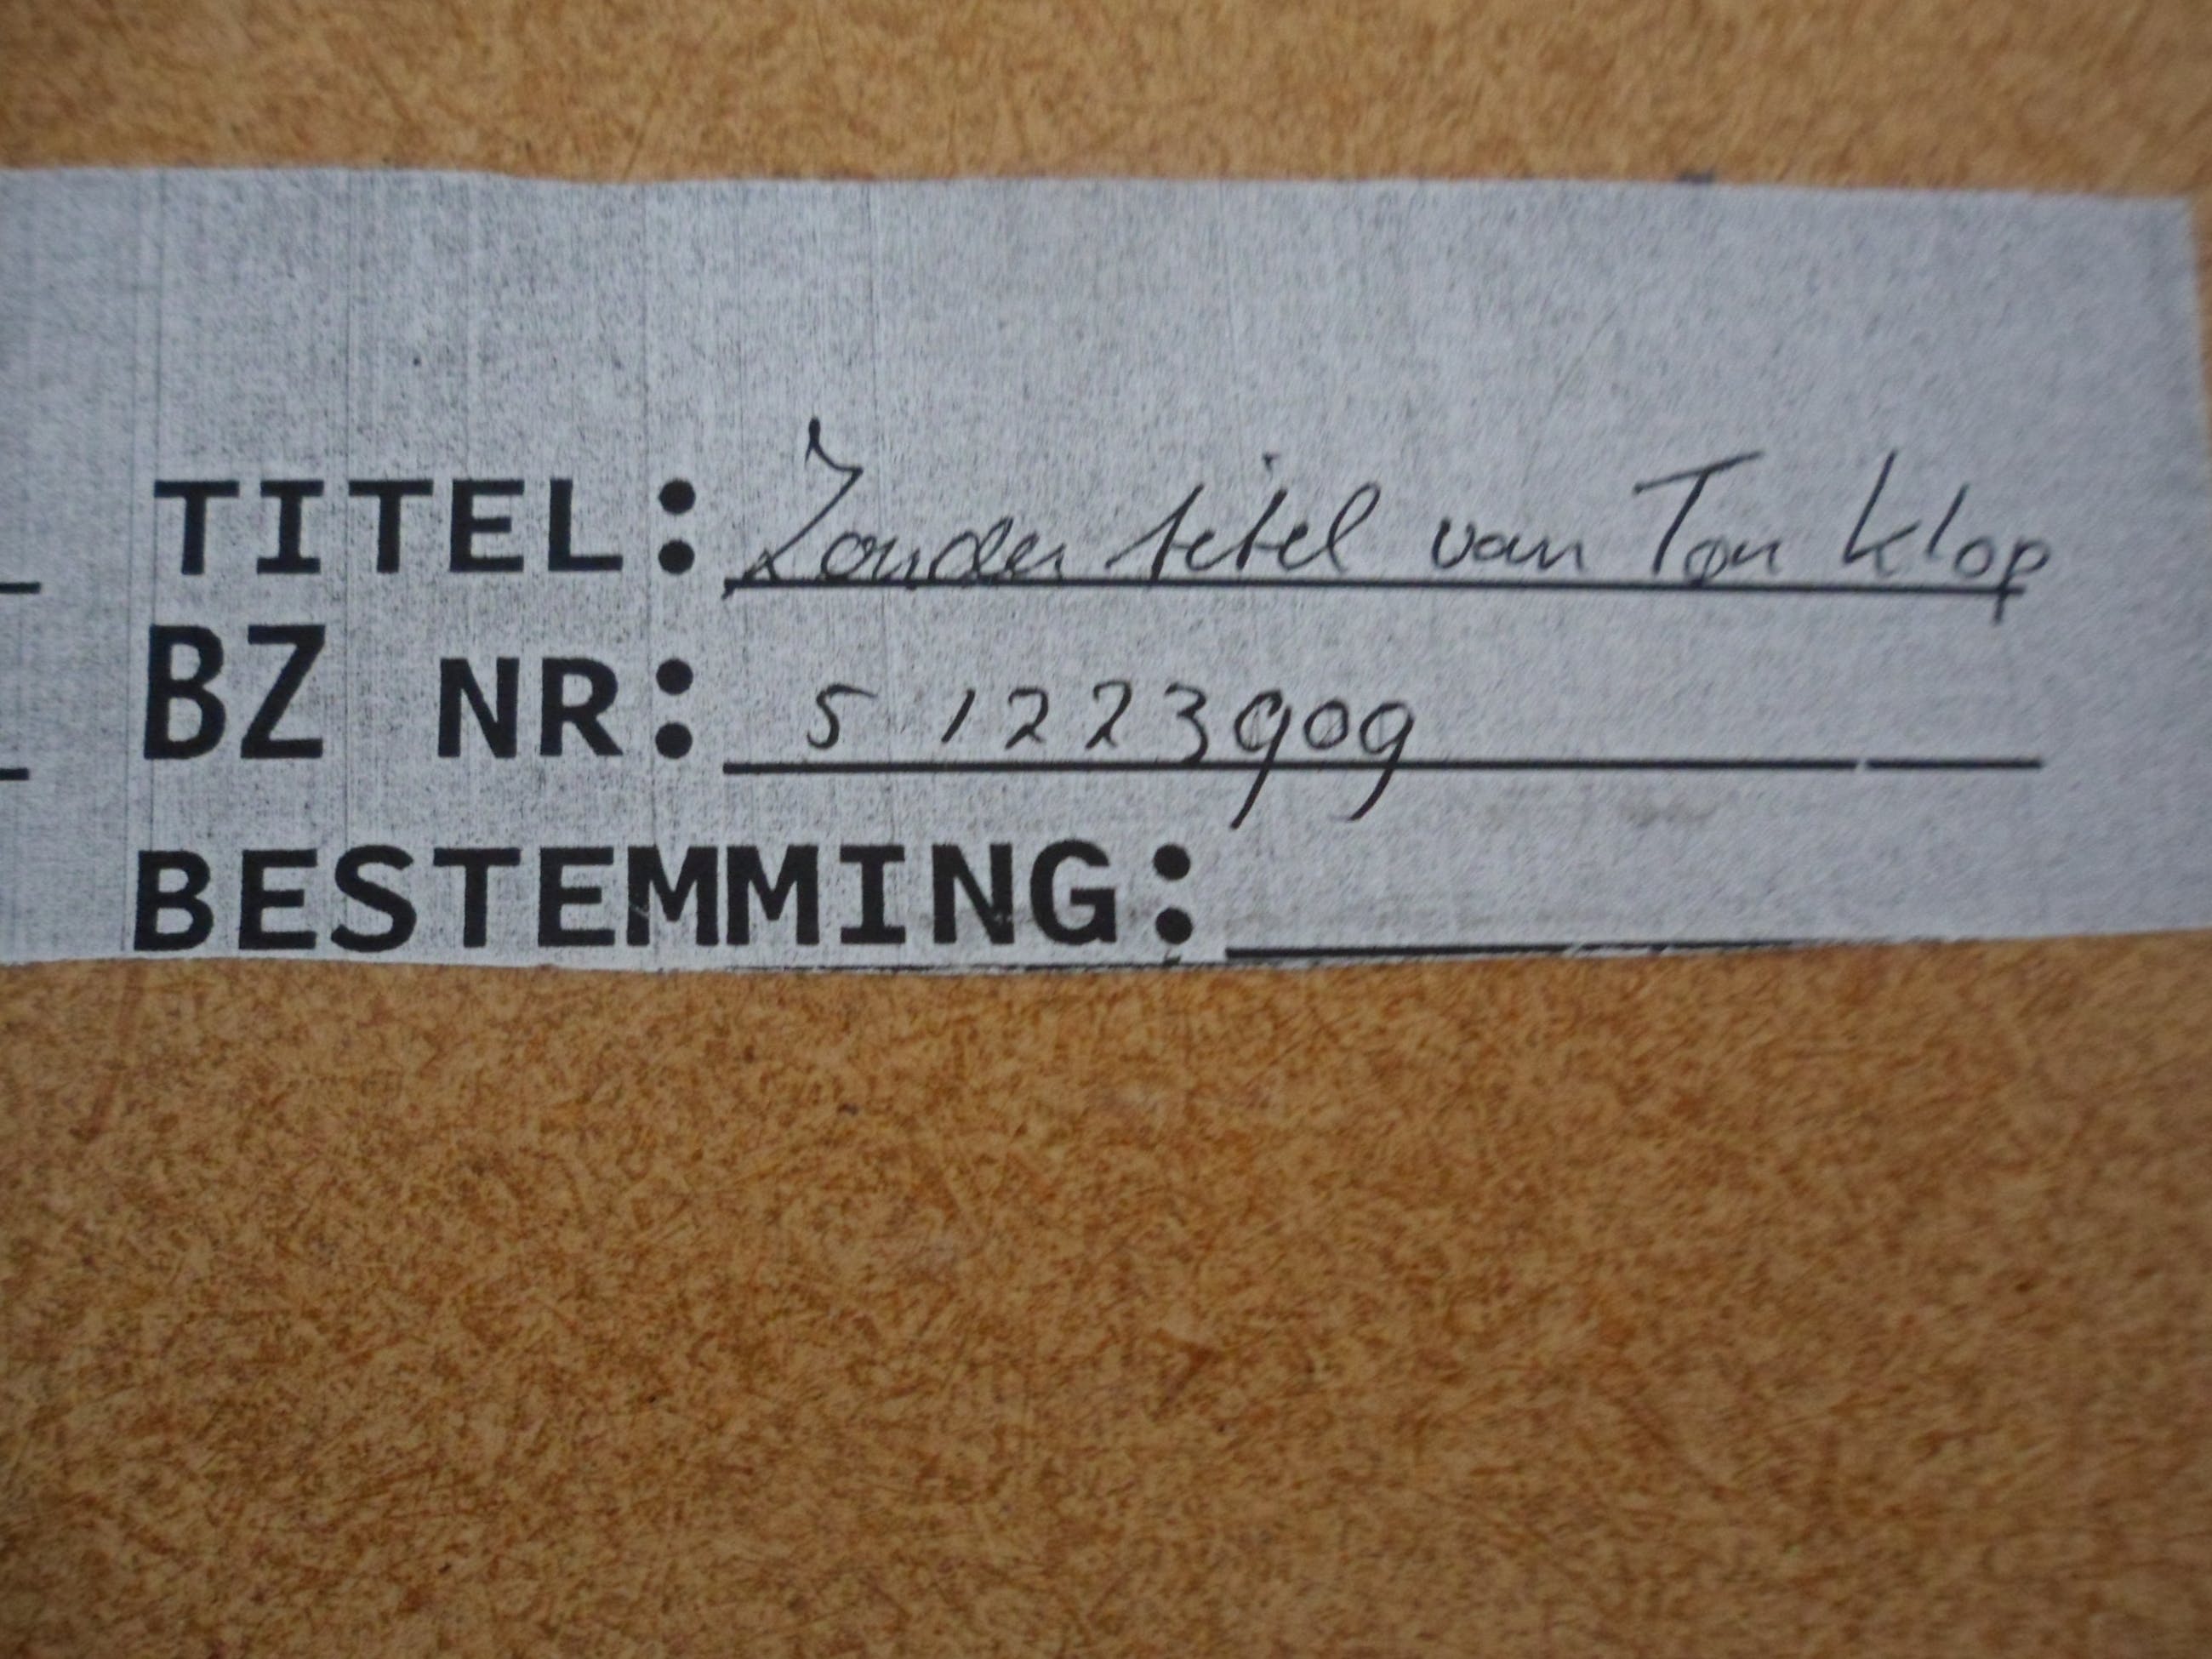 TITEL: Zonder titel van Ton Klop
BZ NR: 5 1223909
BESTEMMING: